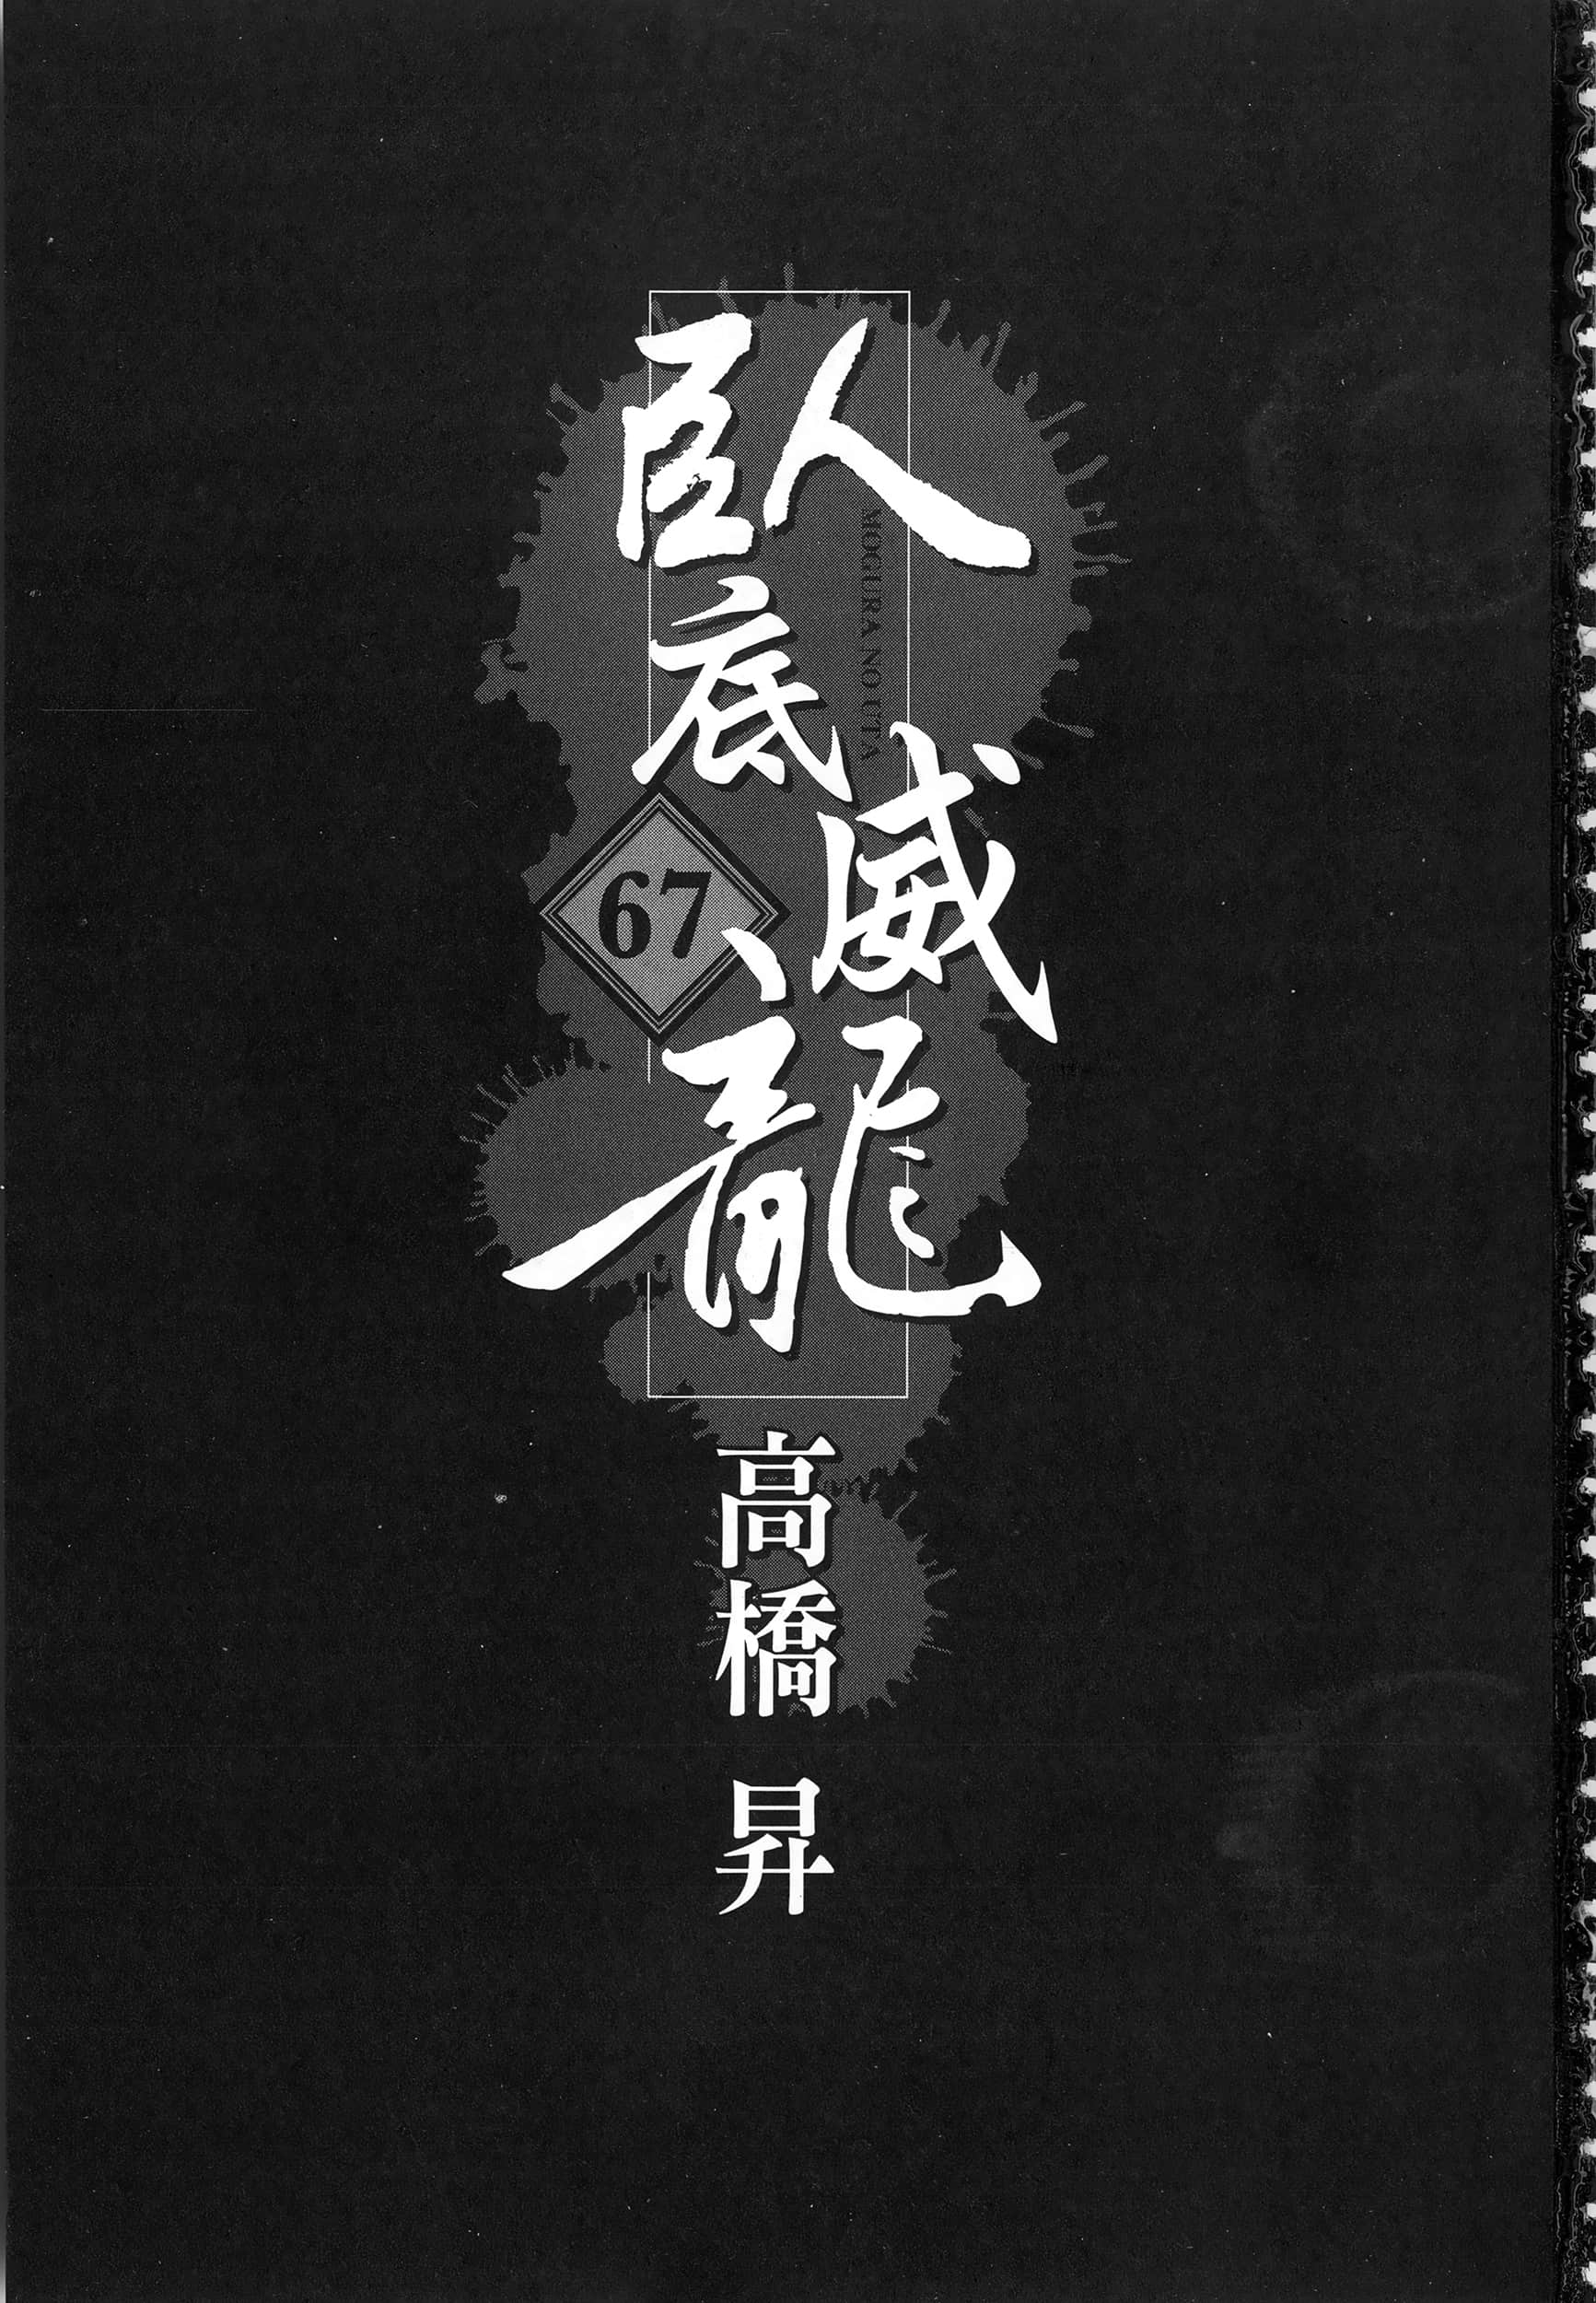 臥底威龍
MOGURA NO UTA
67
高橋 昇